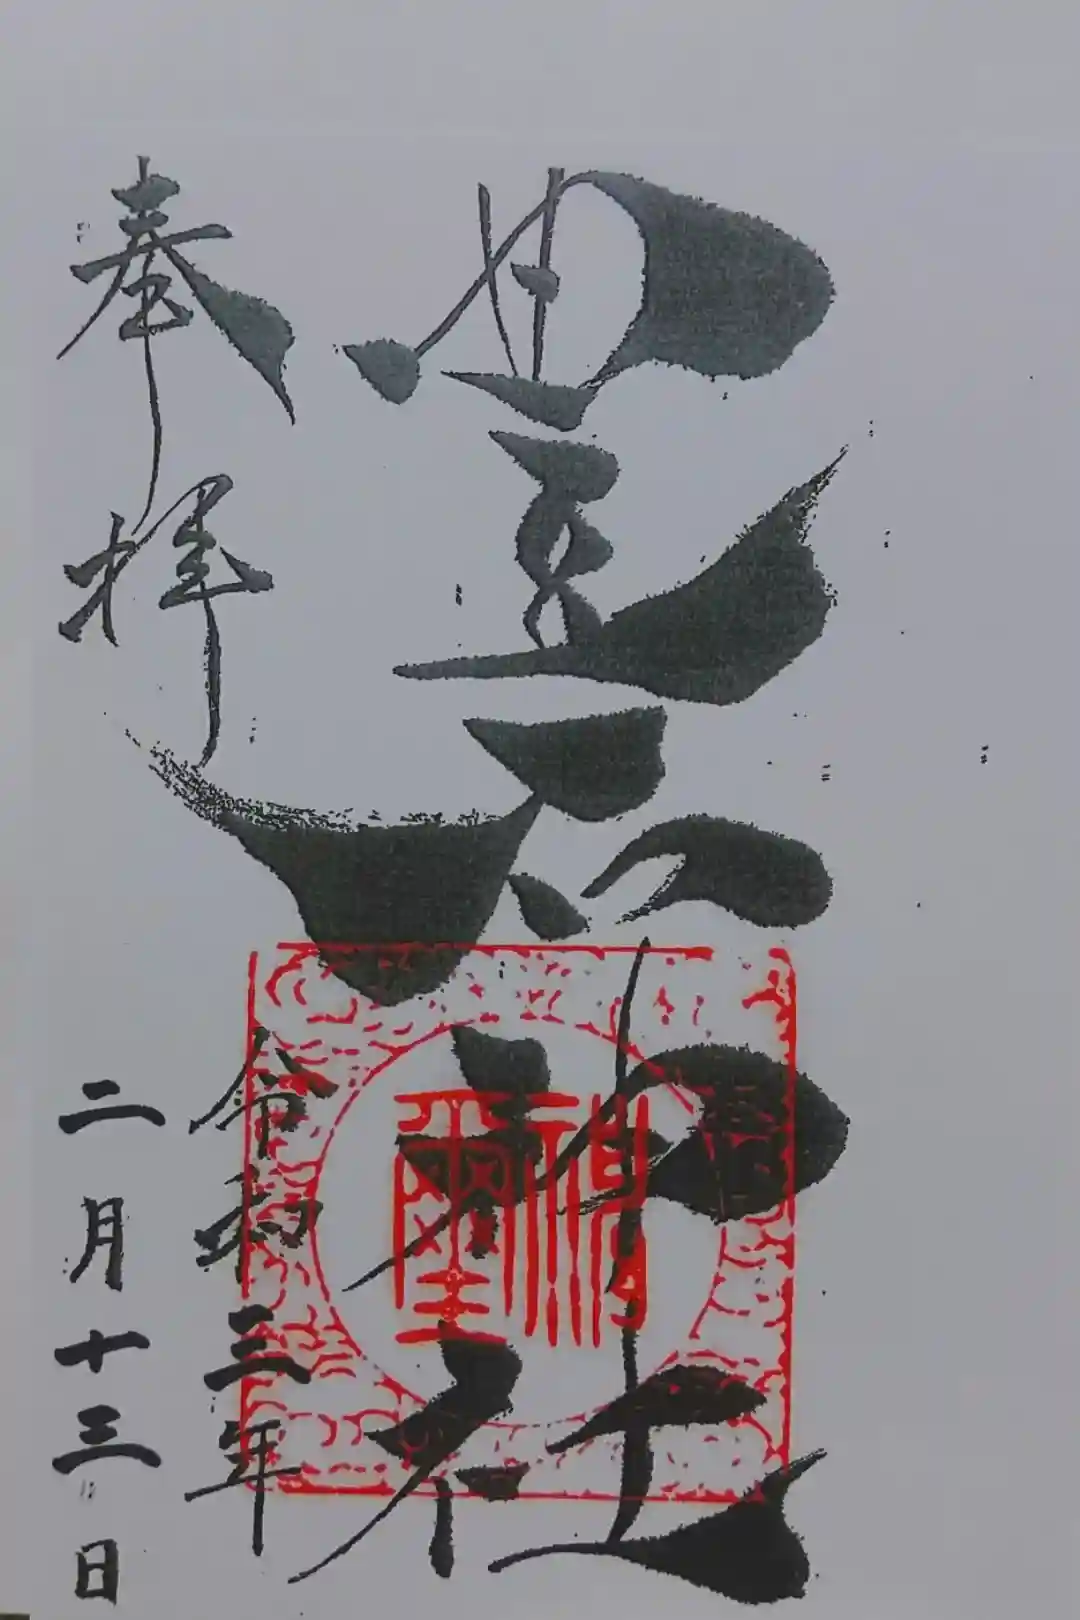 豊六神社
神璽
奉拝
令和三年
二月十三日